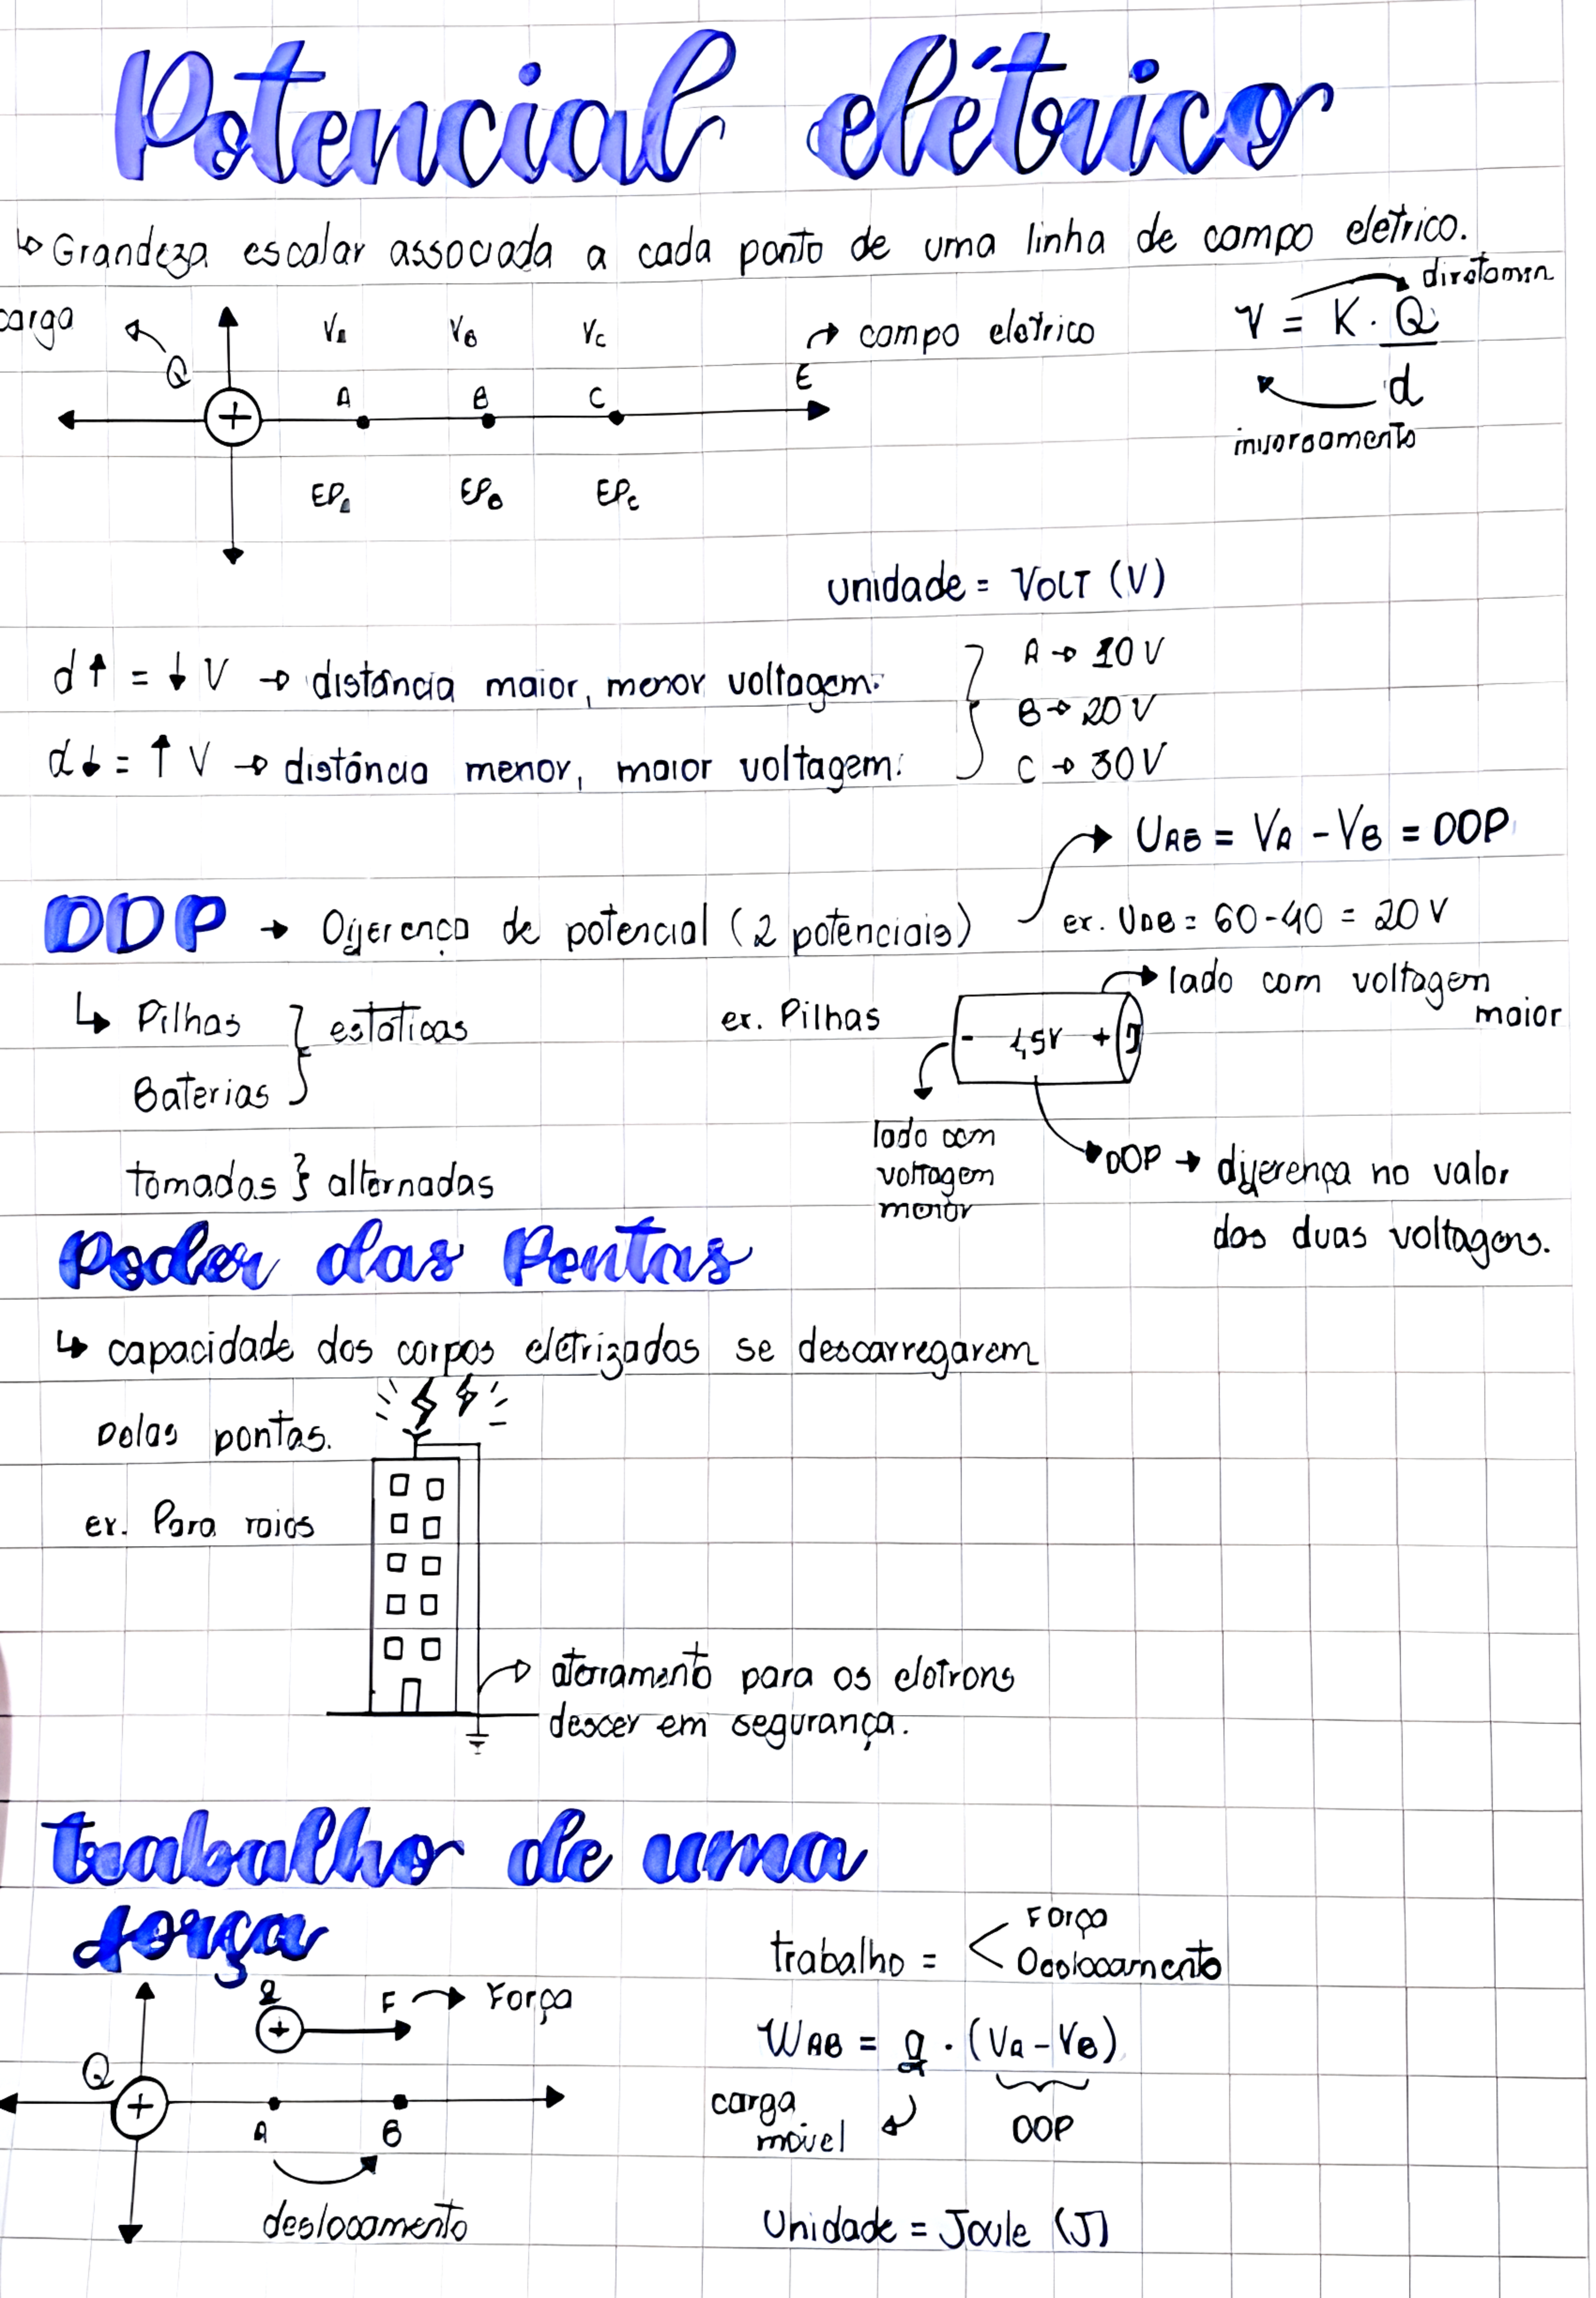 Potencial elétrico
↳ Grandeza escalar associada a cada ponto de uma linha de campo elétrico.
carga
Q
VA VB VC
→ campo eletrico
V = K . Q
d
diretamen
inversamente
+ A B C E
EPA EPB EPC
unidade = VOLT (V)
d↑ = ↓V → distância maior, menor voltagem.
d↓ = ↑V → distância menor, maior voltagem.
A → 10 V
B → 20 V
C → 30 V
UAB = VA - VB = DDP
DDP → Diferença de potencial (2 potenciais)
ex. UAB = 60-40 = 20 V
↳ Pilhas } estáticas
Baterias
tomadas } alternadas
ex. Pilhas
- 1,5V +
lado com voltagem
maior
lado com
voltagem
menor
DDP → diferença no valor
das duas voltagens.
Poder das Pontas
↳ capacidade dos corpos eletrizados se descarregarem
pelas pontas.
ex. Para raios
aterramento para os eletrons
descer em segurança.
trabalho de uma
força
q
+ F → Força
Q + A B
deslocamento
trabalho = < Força
Deslocamento
WAB = q . (VA - VB)
carga
movel
DDP
Unidade = Joule (J)